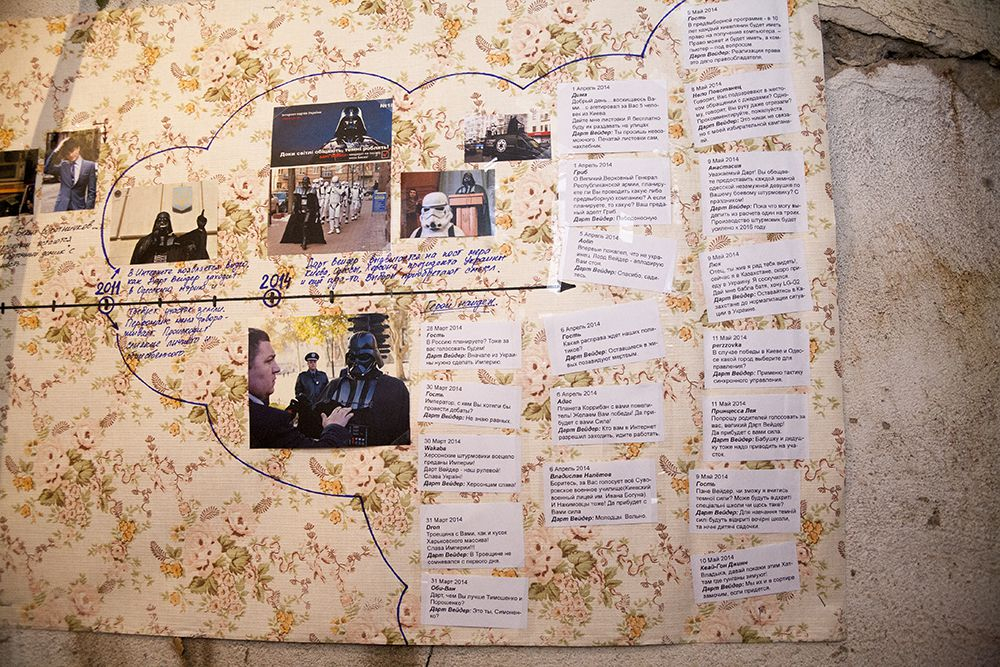 5 Май 2014
Гость
В предвыборной программе - в 10
лет каждый киевлянин будет иметь
право на получение компьютера. –
Право может и будет иметь, а ком-
пьютер – под вопросом.
Дарт Вейдер: Реализация права
это дело правообладателя.
8 Май 2014
Нело Повстанец
Говорят, Вас подозревают в жесто-
ком обращении с джедаями? Одно-
му, говорят, Вы руку даже отрезали?
Прокомментируйте, пожалуйста.
Дарт Вейдер: Это никак не связа-
но с моей избирательной кампани-
9 Май 2014
Анастасия
Уважаемый Дарт! Вы обещае-
те предоставить каждой земной
одесской незамужней девушке по
Вашему боевому штурмовику? С
праздником!
Дарт Вейдер: Пока что могу вы-
делить из расчета один на троих.
Производство штурмовик будет
усилено к 2016 году
9 Май 2014
Люк
Отец, ты жив я рад тебя видеть!
сейчас я в Казахстане, скоро при-
еду в Украину. Я соскучился.
Дай мне бабла батя, хочу LG-G2
Дарт Вейдер: Оставайтесь в Ка-
захстане до нормализации ситуа-
ции в Украине.
11 Май 2014
perzzovka
В случае победы в Киеве и Одес-
се какой город выберите для
правления?
Дарт Вейдер: Применю тактику
синхронного управления.
11 Май 2014
Принцесса Лея
Попрошу родителей голосовать за
вас, великий Дарт Вейдер!
Да прибудет с вами сила.
Дарт Вейдер: Бабушку и дедуш-
ку тоже надо приводить на уча-
сток.
9 Май 2014
Гость
Пане Вейдер, чи зможу я вчитись
темної сили? Може будуть відкриті
спеціальні школи чи щось таке?
Дарт Вейдер: Для навчання темній
силі будуть відкриті вечірні школи,
та нічні дитячі садочки.
10 Май 2014
Квай-Гон Джинн
Владыка, давай покажи этим Хат-
там где гунганы зимуют!
Дарт Вейдер: Мы их и в сортире
замочим, если придется.
1 Апрель 2014
Дима
Добрый день....восхищаюсь Ва-
ми... с агетировал за Вас 5 человек
из Киева
Дайте мне листовки Я бесплатно
буду их раздавать на улицах
Дарт Вейдер: Ты просишь невоз-
можного. Печатай листовки сам,
нахлебник.
1 Апрель 2014
Гриб
О Великий Верховный Генерал
Республиканской армии, планируе-
те ли Вы проводить какую либо
предвыборную компанию? А если
планируете, то какую? Ваш предан-
ый адепт Гриб.
Дарт Вейдер: Победоносную
5 Апрель 2014
Aolin
Впервые пожалел, что не укра-
инец. Лорд Вейдер - аплодирую
Вам стоя.
Дарт Вейдер: Спасибо, сади.
6 Апрель 2014
Гость
Какая расправа ждет наших поли-
тиков?
Дарт Вейдер: Оставшиеся в жи-
вых позавидуют мертвым.
6 Апрель 2014
Адас
Планета Коррибан с вами повели-
тель! Желаем Вам победы! Да при-
будет с вами Сила!
Дарт Вейдер: Кто вам в Интернет
разрешил заходить, идите работать.
6 Апрель 2014
Владислав Налётов
Боритесь, за Вас голосует всё Суво-
ровское военное училище(Киевский
военный лицей им. Ивана Богуна).
И Нахимовцы тоже! Да прибудет с
Вами сила
Дарт Вейдер: Молодцы. Вольно.
28 Март 2014
Гость
В Россию планируете? Тоже за
вас голосовать будем!
Дарт Вейдер: Вначале из Украи-
ны нужно сделать Империю.
30 Март 2014
Гость
Император, с кем Вы хотели бы
провести дебаты?
Дарт Вейдер: Не знаю равных.
30 Март 2014
Wakaba
Херсонские штурмовики всецело
преданы Империи!
Дарт Вейдер - наш рулевой!
Слава Україні!
Дарт Вейдер: Херсонцям слава!
31 Март 2014
Dron
Троещина с Вами, как и кусок
Харьковского массива!
Слава Империи!!!
Дарт Вейдер: В Троещине не
сомневался с первого дня.
31 Март 2014
Оби-Ван
Дарт, чем Вы лучше Тимошенко и
Порошенко?
Дарт Вейдер: Это ты, Симонен-
ко?
Інтернет партія України
№18
Доки світлі обіцяють, темні роблять!
2011
В Интернете появляется видео,
как Дарт Вейдер заходит
в Одесскую мэрию и
требует участок земли.
2014
Дарт Вейдер выдвигается на пост мера
Киева, Одессы, Херсона, президента Украины
и ещё где-то. Выборы приобретают смысл.
Герой найден.